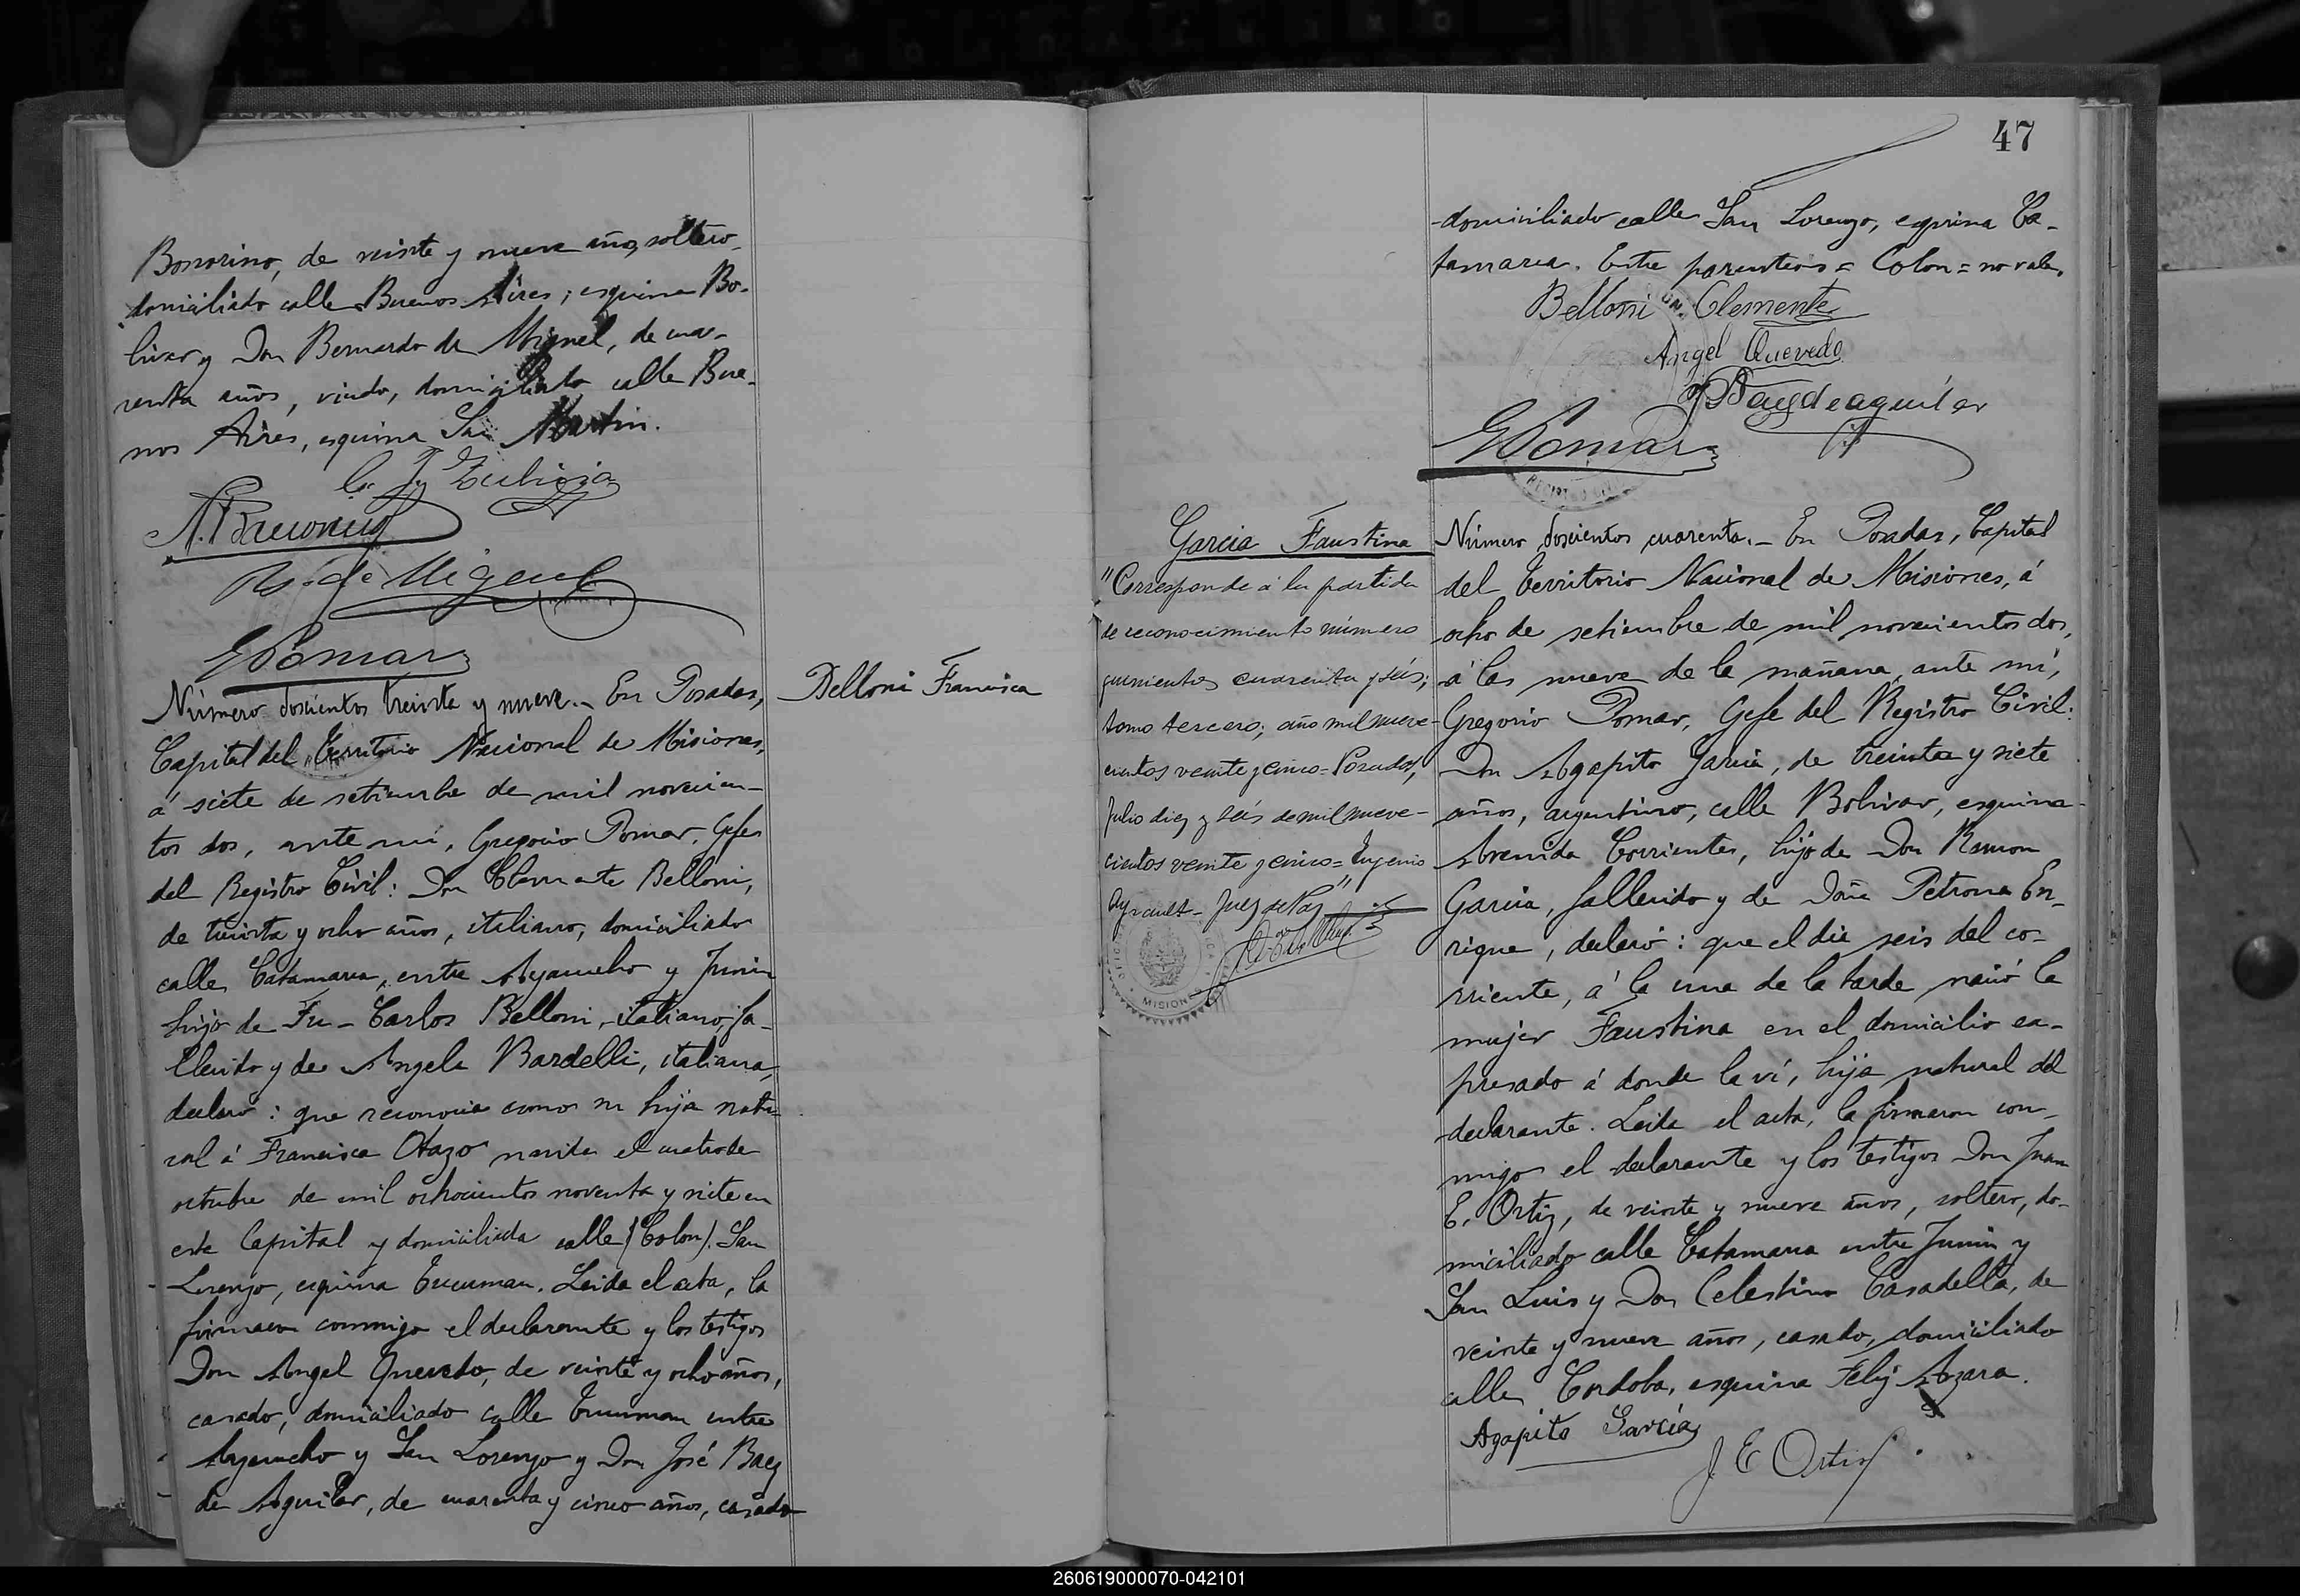 Bonorino, de veinte y nueve años, soltero,
domiciliado calle Buenos Aires, esquina Bo-
livar y Don Bernardo de Miguel, de cua-
renta años, viudo, domiciliado calle Bue-
nos Aires, esquina San Martin.
C. J. Zubizia
B. de Miguel
GPomar
Número doscientos treinta y nueve.- En Posadas,
Capital del Territorio Nacional de Misiones,
á siete de setiembre de mil novecien-
tos dos, ante mí, Gregorio Pomar, Gefe
del Registro Civil: Don Clemente Belloni,
de treinta y ocho años, italiano, domiciliado
calle Catamarca, entre Ayacucho y Junin
hijo de Fu- Carlos Belloni, italiano, fa-
llecido y de Angela Bardelli, italiana,
declaró: que reconocia como su hija natu-
ral á Francisca Otazo nacida el cuatro de
octubre de mil ochocientos noventa y siete en
esta Capital y domiciliada calle (Colon). San
Lorenzo, esquina Tucuman. Leida el acta, la
firmaron conmigo el declarante y los testigos
Don Angel Quevedo, de veinte y ocho años,
casado, domiciliado calle Tucuman entre
Ayacucho y San Lorenzo y Don José Baez
de Aguilar, de cuarenta y cinco años, casado
Belloni Francisca
47
domiciliado calle San Lorenzo, esquina Ca-
tamarca. Entre parentesis = Colon = no vale.
Belloni Clemente
Angel Quevedo
JBaezdeaguilar
GPomar
REGISTRO CIVIL
Garcia Faustina
"Corresponde á la partida
de reconocimiento número
quinientos cuarenta y seis;
tomo tercero; año mil nueve-
cientos veinte y cinco = Posadas,
Julio diez y seis de mil nueve-
cientos veinte y cinco = Eugenio
Ayrault - Juez de Paz"
MISIONES
Número doscientos cuarenta.- En Posadas, Capital
del Territorio Nacional de Misiones, á
ocho de setiembre de mil novecientos dos,
á las nueve de la mañana, ante mí,
Gregorio Pomar, Gefe del Registro Civil:
Don Agapito Garcia, de treinta y siete
años, argentino, calle Bolivar, esquina
Avenida Corrientes, hijo de Don Ramon
Garcia, fallecido y de Doña Petrona En-
rique, declaró: que el dia seis del co-
rriente, á la una de la tarde nació la
mujer Faustina en el domicilio ex-
presado á donde la ví, hija natural del
declarante. Leida el acta, la firmaron con-
migo el declarante y los testigos Don Juan
E. Ortiz, de veinte y nueve años, soltero, do-
miciliado calle Catamarca entre Junin y
San Luis y Don Celestino Casadella, de
veinte y nueve años, casado, domiciliado
calle Cordoba, esquina Feliz Azara.
Agapito Garcia
J. E Ortiz
260619000070-042101